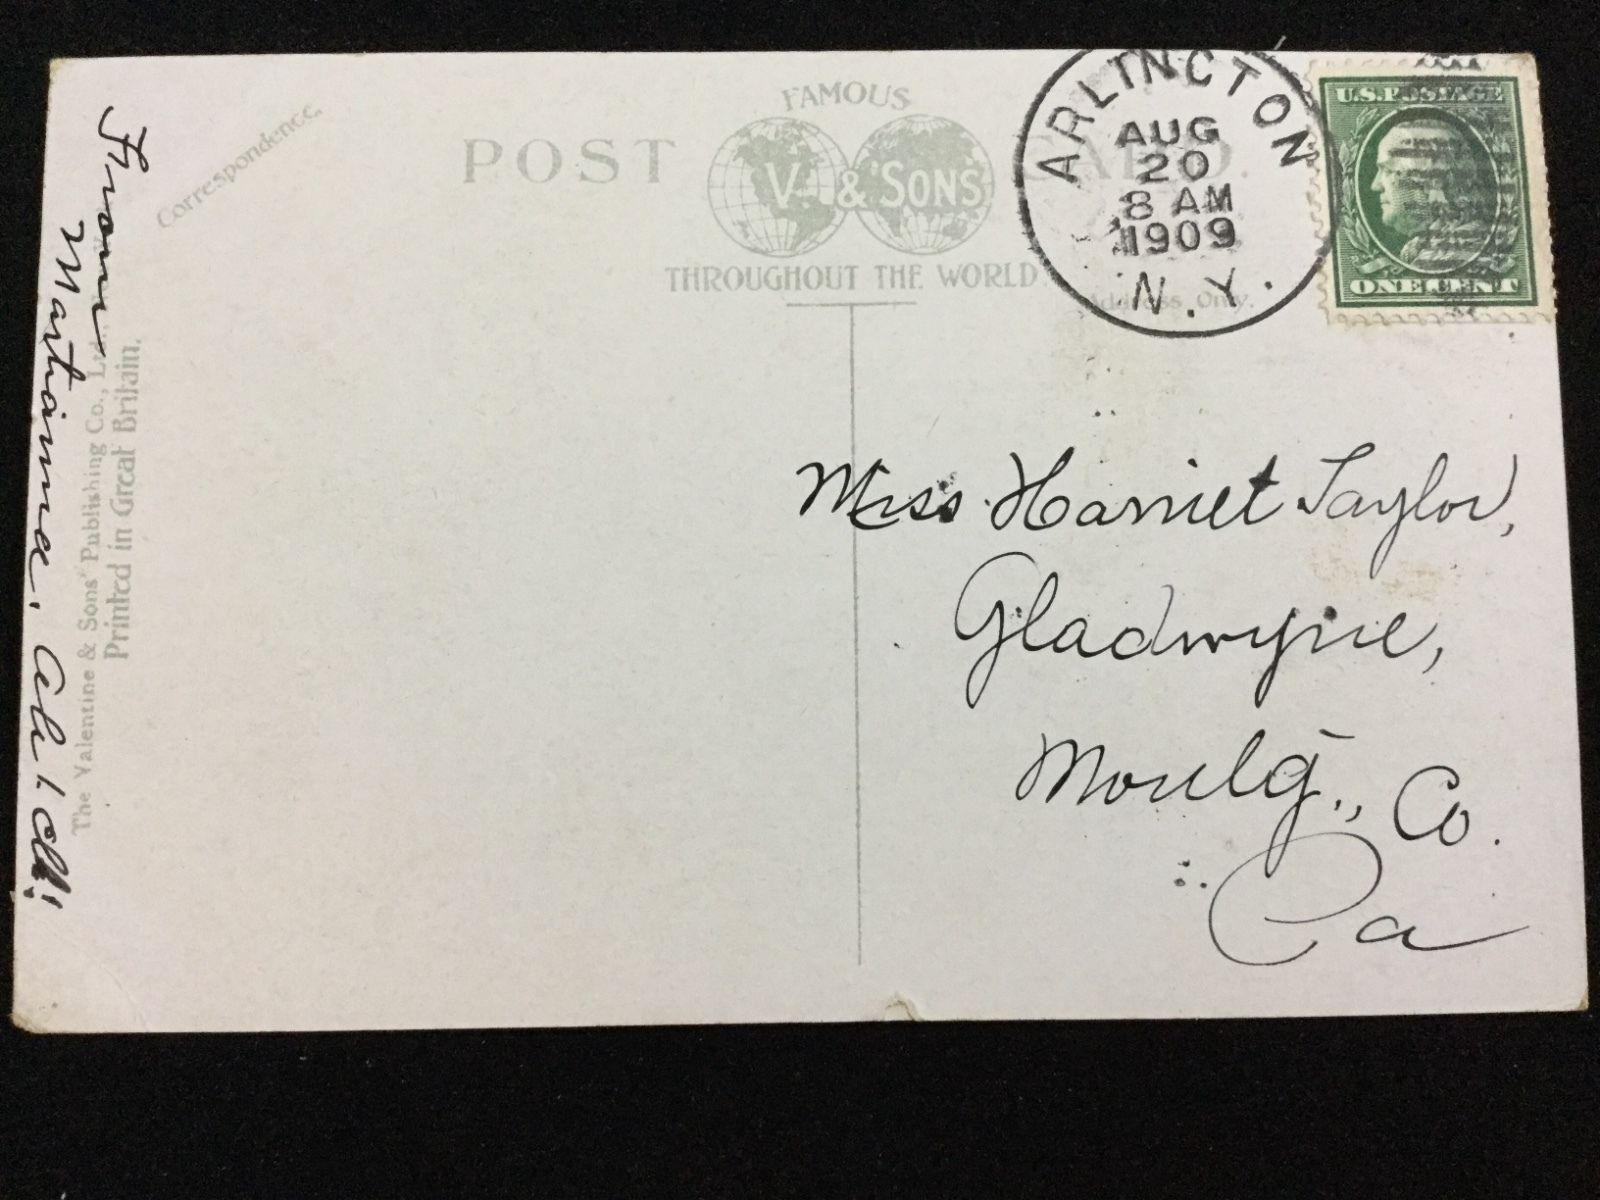 Correspondence.
FAMOUS
POST CARD.
V. & SONS
THROUGHOUT THE WORLD
Address Only.
ARLINGTON
AUG
20
8 AM
1909
N.Y.
U.S. POSTAGE
ONE CENT
From
Martianna. Ah! Ah!
The Valentine & Sons' Publishing Co., Ltd.
Printed in Great Britain.
Miss Harriet Taylor,
Gladwyne,
Montg., Co.
Pa